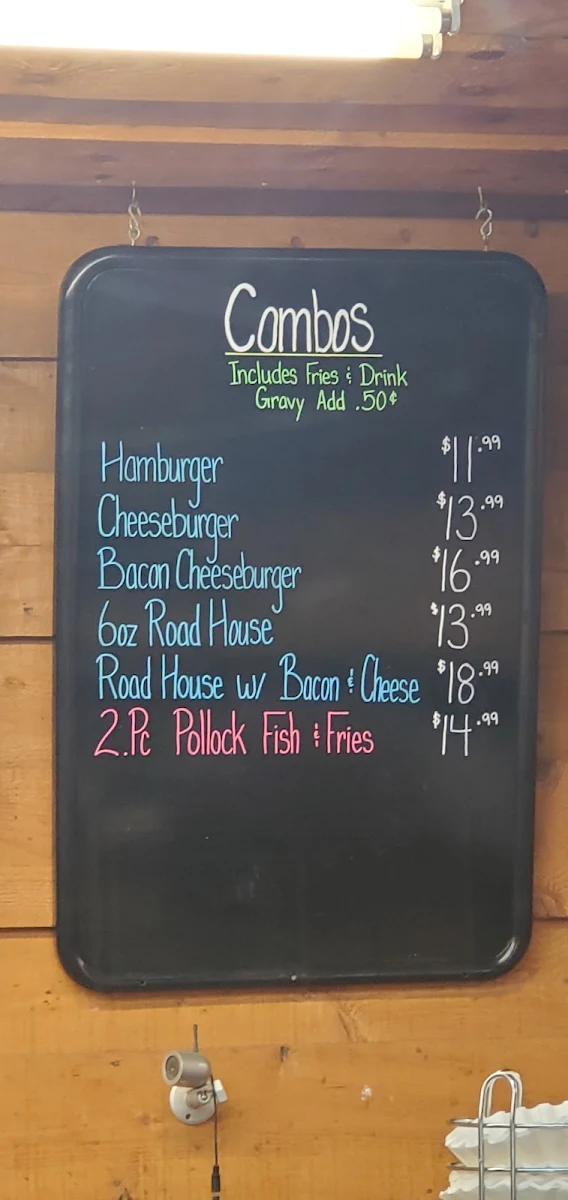 Combos
Includes Fries & Drink
Gravy Add .50¢
Hamburger $11.99
Cheeseburger $13.99
Bacon Cheeseburger $16.99
6oz Road House $13.99
Road House w/ Bacon & Cheese $18.99
2.Pc Pollock Fish & Fries $14.99